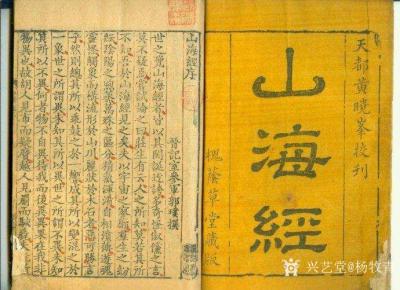 天都黃曉峯校刊
山海經
槐蔭草堂藏版
山海經序
晉記室參軍郭璞撰
世之覽山海經者皆以其閎誕迂誇多奇怪俶儻之言
莫不疑焉嘗試論之曰莊生有云人之所知莫若其所
不知吾於山海經見之矣夫以宇宙之寥廓羣生之紛
紜陰陽之煦蒸萬殊之區分精氣渾淆自相濆薄遊魂
靈怪觸象而構流形於山川麗狀於木石者惡可勝言
乎然則總其所以乖鼓之於一響成其所以變混之於
一象世之所謂異未知其所以異世之所謂不異未知
其所以不異何者物不自異待我而後異異果在我非
物異也故胡人見布而疑黂越人見罽而駭毳
兴艺堂@杨牧青